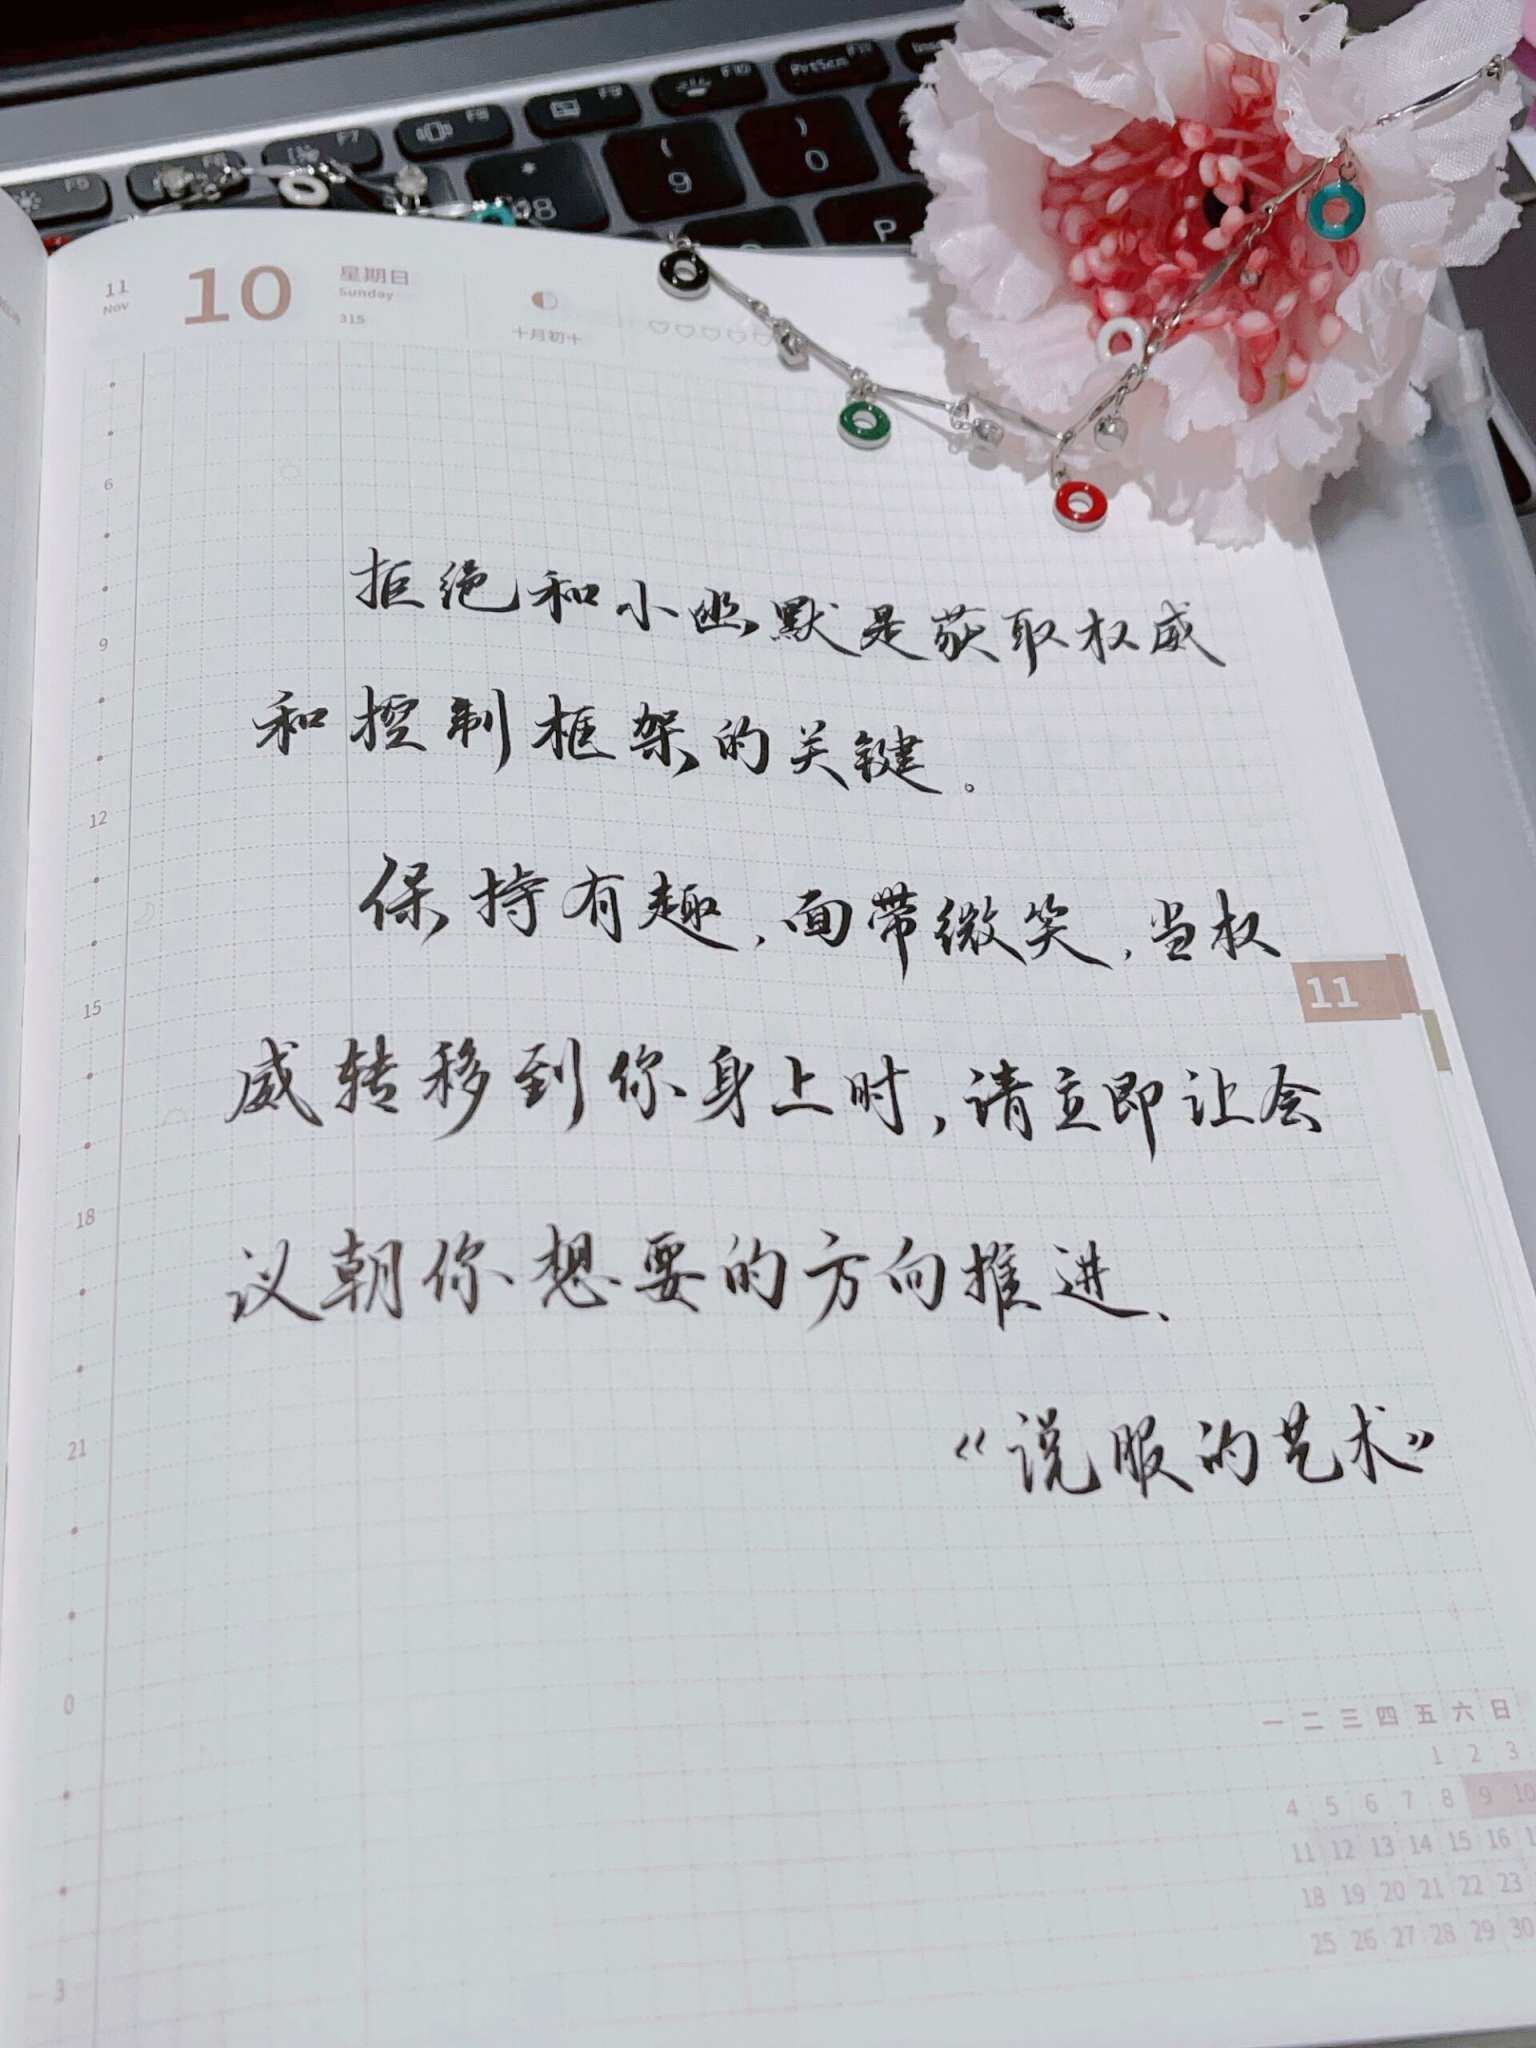 F5 F6 F7 F8 F9 F10 PrtScn
* 8 ( 9 ) 0
P
11 Nov 10 星期日 Sunday 315 十月初十
6
9
12
15
18
21
0
3
拒绝和小幽默是获取权威
和控制框架的关键。
保持有趣，面带微笑，当权
威转移到你身上时，请立即让会
议朝你想要的方向推进、
《说服的艺术》
11
一 二 三 四 五 六 日
1 2 3
4 5 6 7 8 9 10
11 12 13 14 15 16
18 19 20 21 22 23
25 26 27 28 29 30